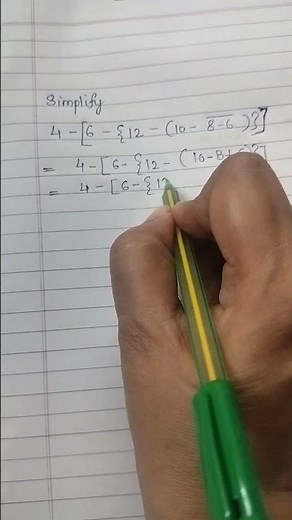 Simplify
4 - [6 - {12 - (10 - 8̅ ̅-̅ ̅6̅)}]
= 4 - [6 - {12 - (10 - 8 + 6)}]
= 4 - [6 - {12